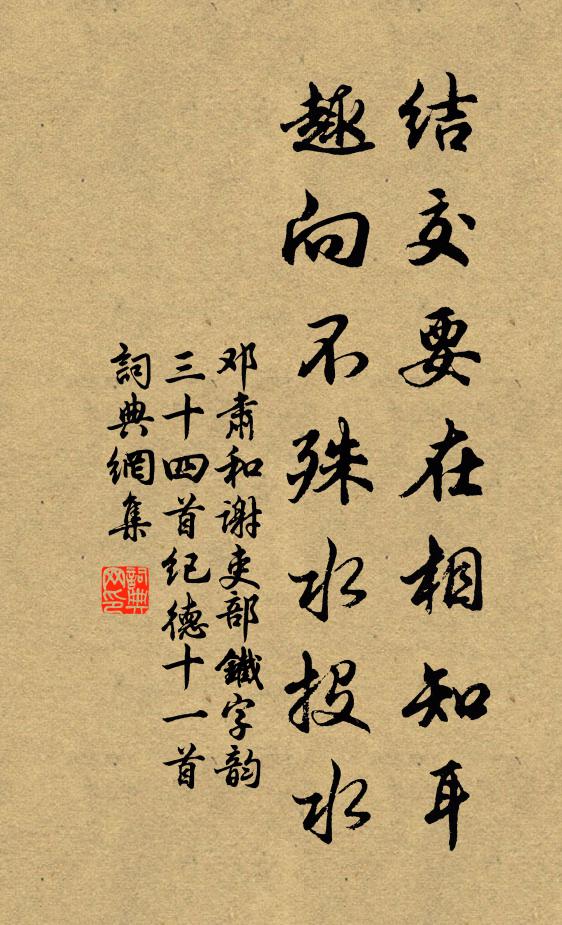 结交要在相知耳
趣向不殊水投水
邓肃和谢吏部鐵字韵
三十四首纪德十一首
詞典網集
詞典网印